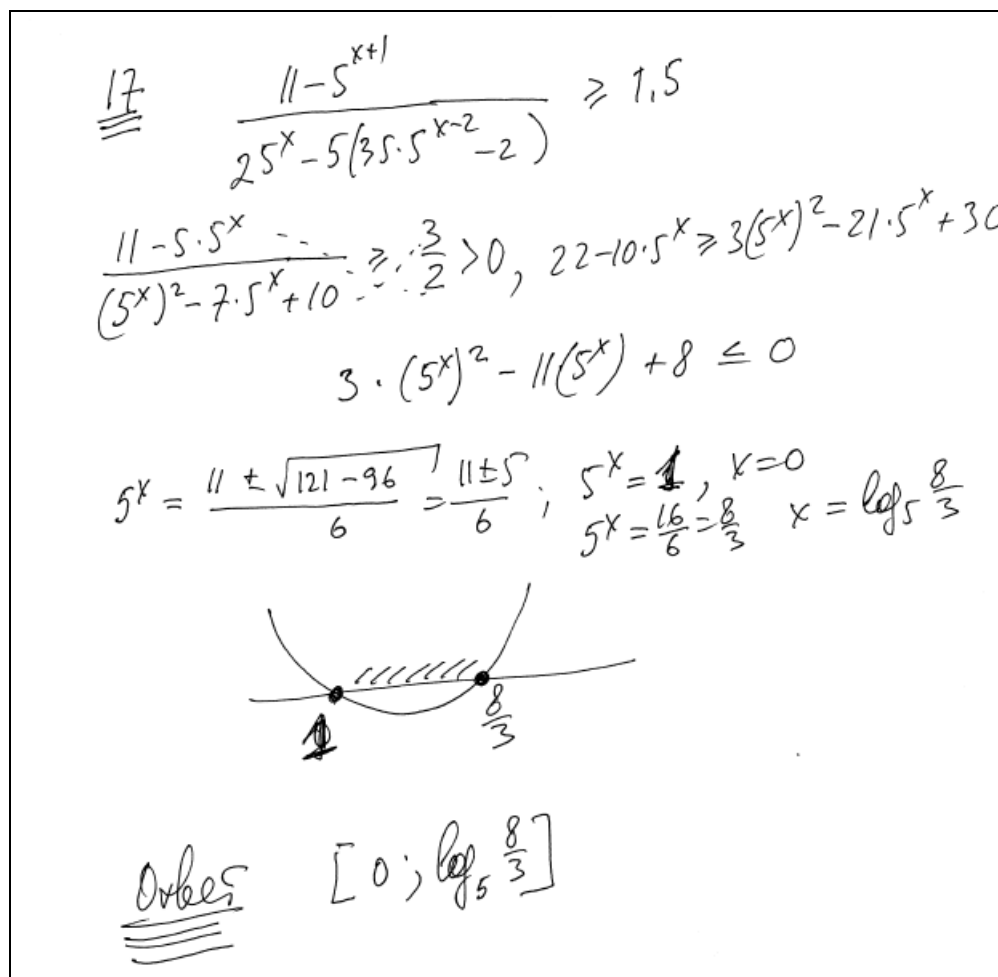 17 (11-5^(x+1))/(25^x-5(35·5^(x-2)-2)) ≥ 1,5
(11-5·5^x)/((5^x)²-7·5^x+10) ≥ 3/2 > 0, 22-10·5^x ≥ 3(5^x)²-21·5^x+30
3·(5^x)²-11(5^x)+8 ≤ 0
5^x = (11±√(121-96))/6 = (11±5)/6; 5^x = 1, x=0
5^x = 16/6 = 8/3 x = log₅ 8/3
1 8/3
Ответ [0; log₅ 8/3]